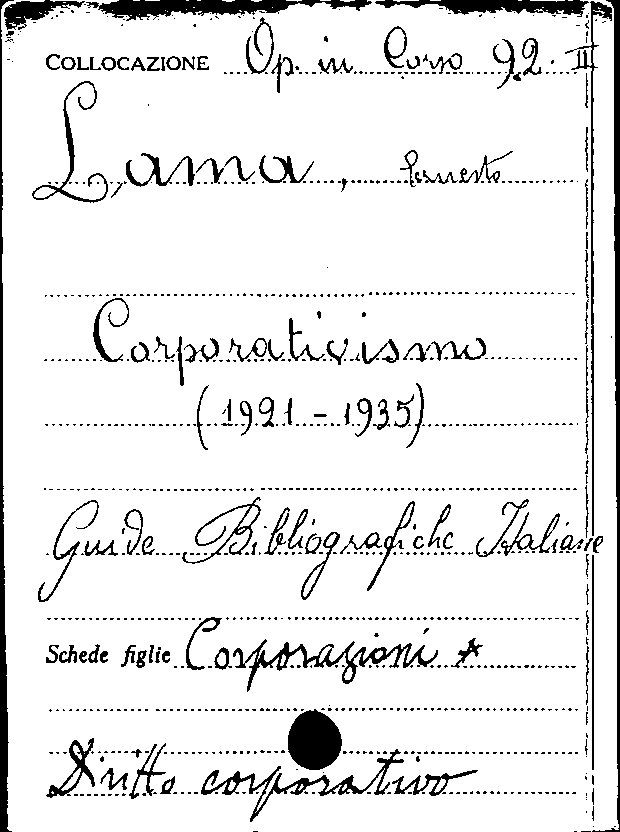 COLLOCAZIONE Op. in Corso 92. III
Lama, Ernesto
Corporativismo
(1921 - 1935)
Guide Bibliografiche Italiane
Schede figlie Corporazioni *
Diritto corporativo